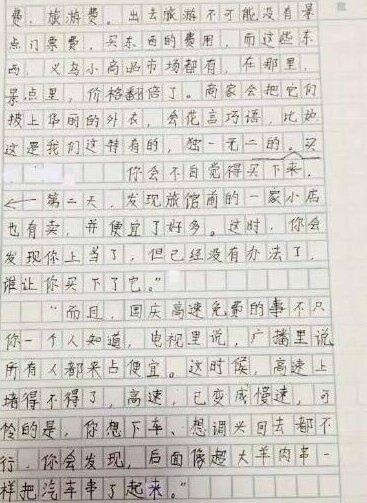 费，旅游费。出去旅游不可能没有景
点门票费，买东西的费用，而这些东
西，义乌小商品市场都有，在那里，
景点里，价格翻倍了。商家会把它们
披上华丽的外衣，会花言巧语，比如
这是我们这特有的，独一无二的。买
你会不自觉得买下来，
第二天，发现旅馆前的一家小店
也有卖，并便宜了好多。这时，你会
发现你上当了，但已经没有办法了，
谁让你买下了它。”
“而且，国庆高速免费的事不只
你一个人知道，电视里说，广播里说
所有人都来占便宜。这时候，高速上
堵得不得了，高速，已变成慢速，可
怜的是，你想下车、想调头回去都不
行，你会发现，后面像超大羊肉串一
样把汽车串了起来。”